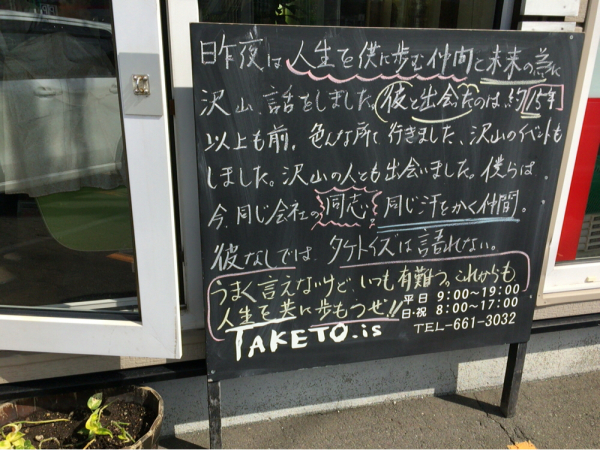 昨夜は人生を供に歩む仲間と未来の為に
沢山、話をしました。彼と出会たのは、約15年
以上も前。色んな所に行きました、沢山のイベントも
しました。沢山の人とも出会いました。僕らは、
今、同じ会社の同志!!同じ汗をかく仲間。
彼なしでは、タケトイズは語れない。
うまく言えないけど、いつも有難う。これからも
人生を共に歩もうぜ!!
平日 9:00~19:00
日・祝 8:00~17:00
TAKETO.is
TEL-661-3032